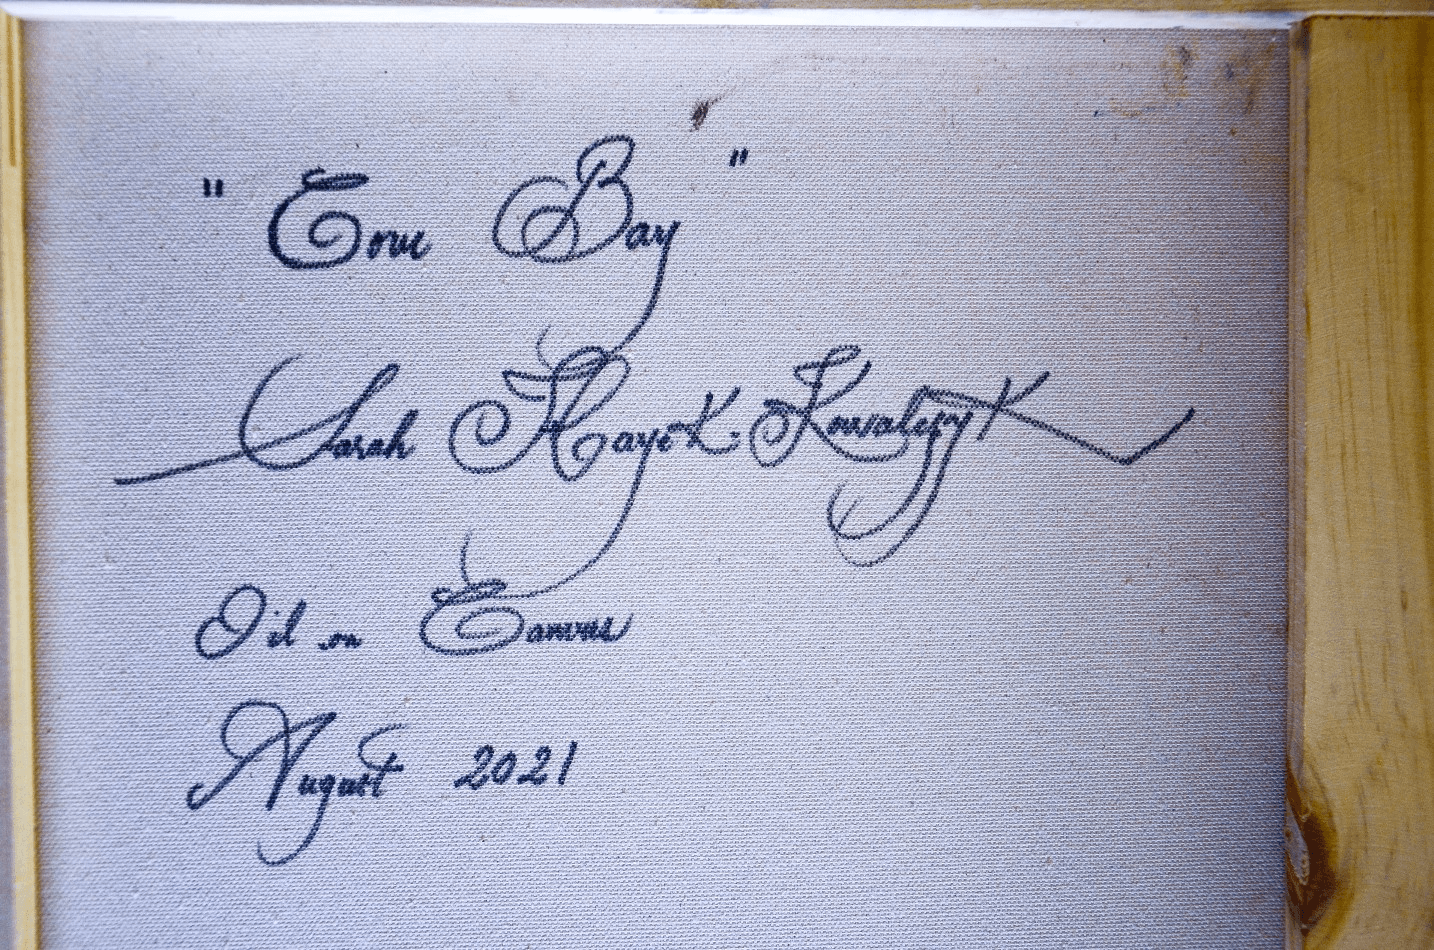 "Cove Bay"
Sarah Hayek Kowalczyk
Oil on Canvas
August 2021